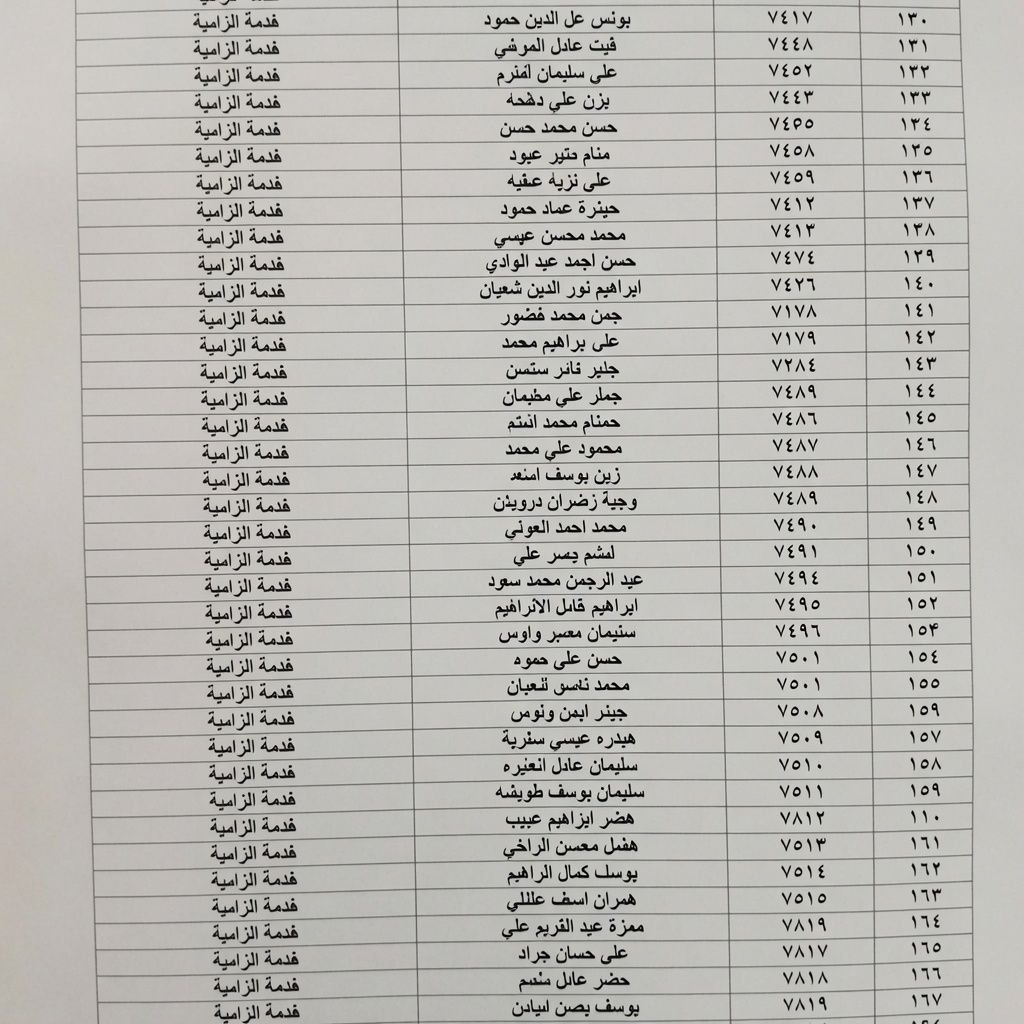 ١٣٠ ٧٤١٧ يونس عل الدين حمود فدمة الزامية
١٣١ ٧٤٤٨ فيت عادل الموشي فدمة الزامية
١٣٢ ٧٤٥٢ علي سليمان فدمة الزامية
١٣٣ ٧٤٤٣ يزن علي دشحه فدمة الزامية
١٣٤ حسن محمد حسن فدمة الزامية
١٣٥ ٧٤٥٨ منام عبود فدمة الزامية
١٣٦ ٧٤٥٩ على نزيه عفيه فدمة الزامية
١٣٧ ٧٤١٢ حينرة عماد حمود فدمة الزامية
١٣٨ ٧٤١٣ محمد محسن عيسي فدمة الزامية
١٣٩ ٧٤٧٤ حسن اجمد عيد الوادي فدمة الزامية
١٤٠ ٧٤٢٦ ابراهيم نور الدين شعيان فدمة الزامية
١٤١ ٧١٧٨ جمن محمد فضور فدمة الزامية
١٤٢ ٧١٧٩ على براهيم محمد فدمة الزامية
١٤٣ ٧٢٨٤ جلير فانر ستسن فدمة الزامية
١٤٤ ٧٤٨٩ جمار علي مظيمان فدمة الزامية
١٤٥ ٧٤٨٦ حمنام محمد انستم فدمة الزامية
١٤٦ ٧٤٨٧ محمود علي محمد فدمة الزامية
١٤٧ ٧٤٨٨ زين يوسف امنعد فدمة الزامية
١٤٨ ٧٤٨٩ وجية زضران درويدن فدمة الزامية
١٤٩ ٧٤٩٠ محمد احمد العوني فدمة الزامية
١٥٠ ٧٤٩١ لمشم يسر علي فدمة الزامية
١٥١ ٧٤٩٤ عيد الرجمن محمد سعود فدمة الزامية
١٥٢ ٧٤٩٥ ابراهيم قامل فدمة الزامية
١٥٣ ٧٤٩٦ سنيمان معبر واوس فدمة الزامية
١٥٤ ٧٥٠١ حسن على حموه فدمة الزامية
١٥٥ ٧٥٠١ محمد ناسو فدمة الزامية
١٥٩ ٧٥٠٨ جينر ايمن ونوس فدمة الزامية
١٥٧ ٧٥٠٩ هيدره عيسي سفرية فدمة الزامية
١٥٨ ٧٥١٠ سليمان عادل انعيره فدمة الزامية
١٥٩ ٧٥١١ سليمان يوسف طويشه فدمة الزامية
١١٠ ٧٨١٢ هضر ايزاهيم عبيب فدمة الزامية
١٦١ ٧٥١٣ هفسل معسن الراخي فدمة الزامية
١٦٢ ٧٥١٤ يوسف كمال الراهيم فدمة الزامية
١٦٣ ٧٥١٥ همران اسف عللي فدمة الزامية
١٦٤ ٧٨١٩ ممزة عيد القريم علي فدمة الزامية
١٦٥ ٧٨١٧ على حسان جراد فدمة الزامية
١٦٦ ٧٨١٨ حضر عادل منسم فدمة الزامية
١٦٧ ٧٨١٩ يوسف يصن فدمة الزامية